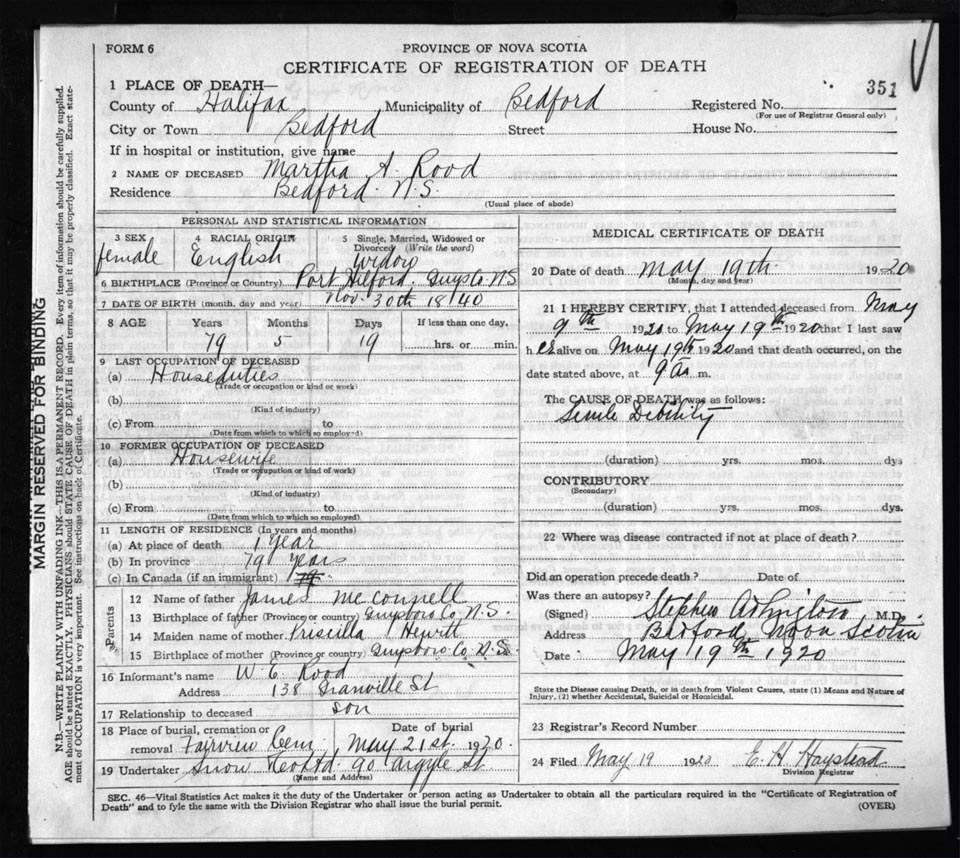 FORM 6
PROVINCE OF NOVA SCOTIA
CERTIFICATE OF REGISTRATION OF DEATH
351
1 PLACE OF DEATH—
County of Halifax Municipality of Bedford Registered No.
(For use of Registrar General only)
City or Town Bedford Street House No.
If in hospital or institution, give name
2 NAME OF DECEASED Martha A. Rood
Residence Bedford N.S.
(Usual place of abode)
PERSONAL AND STATISTICAL INFORMATION
3 SEX 4 RACIAL ORIGIN 5 Single, Married, Widowed or Divorced (Write the word)
female English Widow
6 BIRTHPLACE (Province or Country) Port Hilford. Guys Co N.S
7 DATE OF BIRTH (month, day and year) Nov. 30th 1840
8 AGE Years Months Days If less than one day,
79 5 19 hrs. or min.
9 LAST OCCUPATION OF DECEASED
(a) Houseduties
(Trade or occupation or kind or work)
(b)
(Kind of industry)
(c) From to
(Date from which to which so employed)
10 FORMER OCCUPATION OF DECEASED
(a) Housewife
(Trade or occupation or kind of work)
(b)
(Kind of industry)
(c) From to
(Date from which to which so employed).
11 LENGTH OF RESIDENCE (In years and months)
(a) At place of death 1 Year
(b) In province 79 Years
(c) In Canada (if an immigrant)
Parents
12 Name of father James McConnell
13 Birthplace of father (Province or country) Guysboro Co N.S.
14 Maiden name of mother Priscilla Hewitt
15 Birthplace of mother (Province or country) Guysboro Co. N.S
16 Informant's name W. E. Rood
Address 138 Granville St
17 Relationship to deceased son
18 Place of burial, cremation or removal Fairview Cem Date of burial May 21st. 1920.
19 Undertaker Snow & Co Ltd. 90 Argyle St.
(Name and Address)
MEDICAL CERTIFICATE OF DEATH
20 Date of death May 19th. 1920
(Month, day and year)
21 I HEREBY CERTIFY, that I attended deceased from May
9th 1920 to May 19th 1920 that I last saw
her alive on May 19th 1920 and that death occurred, on the
date stated above, at 9 a. m.
The CAUSE OF DEATH was as follows:
Senile Debility
(duration) yrs. mos. dys
CONTRIBUTORY
(Secondary)
(duration) yrs. mos. dys.
22 Where was disease contracted if not at place of death?
Did an operation precede death? Date of
Was there an autopsy?
(Signed) Stephen M.D.
Address Bedford, Nova Scotia
Date May 19th 1920
State the Disease causing Death, or in death from Violent Causes, state (1) Means and Nature of
Injury, (2) whether Accidental, Suicidal or Homicidal.
23 Registrar's Record Number
24 Filed May 19 1920 E. H. Haystead
Division Registrar
SEC. 46—Vital Statistics Act makes it the duty of the Undertaker or person acting as Undertaker to obtain all the particulars required in the "Certificate of Registration of
Death" and to fyle the same with the Division Registrar who shall issue the burial permit.
(OVER)
MARGIN RESERVED FOR BINDING
N.B.—WRITE PLAINLY WITH UNFADING INK—THIS IS A PERMANENT RECORD. Every item of information should be carefully supplied.
AGE should be stated EXACTLY. PHYSICIANS should STATE CAUSE OF DEATH in plain terms, so that it may be properly classified. Exact state-
ment of OCCUPATION is very important. See instructions on back of Certificate.